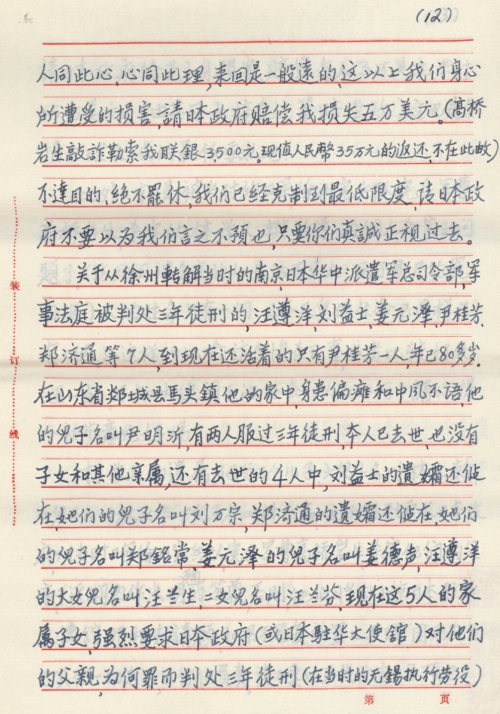 (12)
人同此心,心同此理,来回是一般远的,这以上我们身心
所遭受的损害,請日本政府赔偿我损失五万美元。(高桥
岩生敲詐勒索我联銀3500元。現值人民幣35万元的返还,不在此数)
不達目的,绝不罢休,我们已经克制到最低限度,请日本政
府不要以为我们言之不預也,只要你们真誠正视过去。
关于从徐州轉解当时的南京,日本华中派遣军总司令部,军
事法庭被判处三年徒刑的,汪遵洋,刘益士,姜元澤,尹桂芳、
郑济通等7人,到现在还活着的只有尹桂芳一人,年已80多岁,
在山东省郯城县馬头鎮他的家中,身患偏癱和中风不语,他
的兒子名叫尹明沂,有两人服过三年徒刑,本人已去世,也没有
子女和其他亲属,还有去世的4人中,刘益士的遺孀还健
在,她们的兒子名叫刘万宗,郑济通的遺孀还健在,她们
的兒子名叫郑銘常,姜元澤的兒子名叫姜德声,汪遵洋
的大女兒名叫汪兰生,二女兒名叫汪兰芬,現在这5人的家
属子女,强烈要求日本政府(或日本駐华大使館)对他们
的父親,为何罪而判处三年徒刑(在当时的无錫执行劳役)
装
订
线
第 页